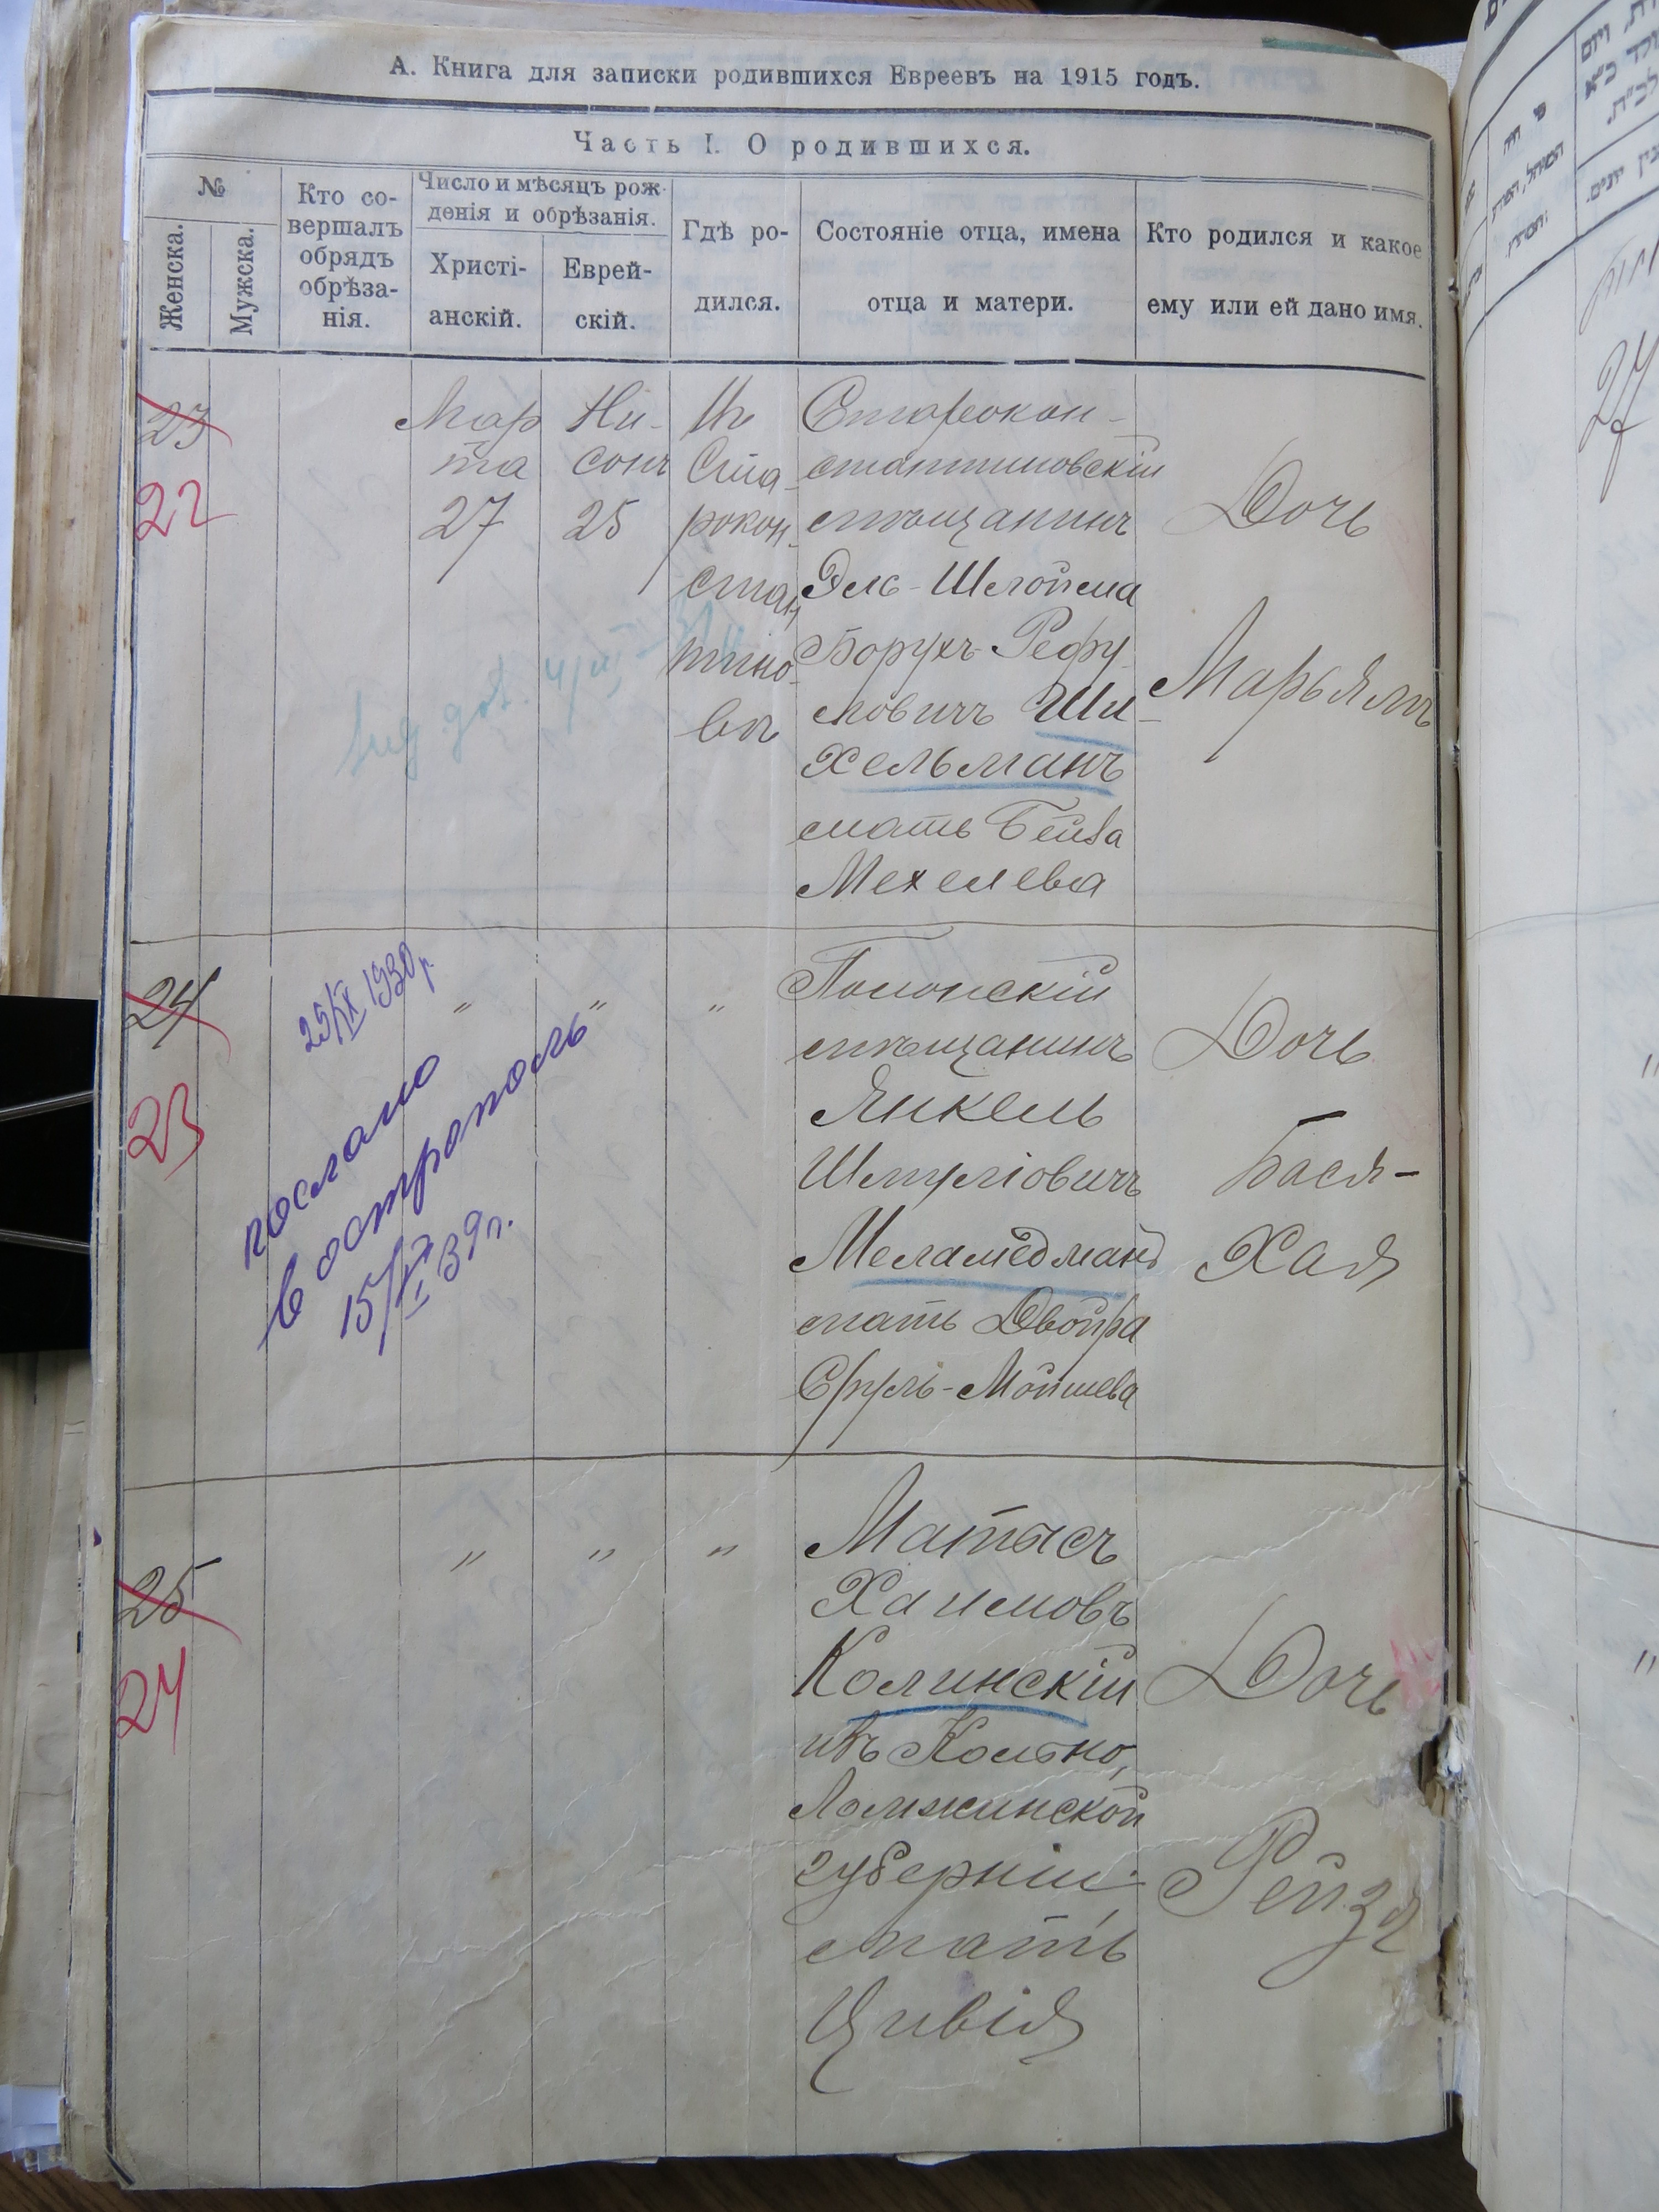 А. Книга для записки родившихся Евреевъ на 1915 годъ.
Часть I. О родившихся.
№
Женска.
Мужска.
Кто со-
вершалъ
обрядъ
обрѣза-
нія.
Число и мѣсяцъ рож-
денія и обрѣзанія.
Христі-
анскій.
Еврей-
скій.
Гдѣ ро-
дился.
Состояніе отца, имена
отца и матери.
Кто родился и какое
ему или ей дано имя.
23
22
Мар
та
27
Ни-
сонъ
25
Въ
Ста-
рокон-
стан
тино-
вѣ
Старокон-
стантиновскій
мѣщанинъ
Эль-Шлойма
Борухъ-Рефу
ловичъ Ши-
хельманъ
мать Бейла
Мехелева
Дочь
Марьямъ
24
23
25/IX 1930 г.
послано
в острополь
15/VI 39 г.
"
"
"
Полонскій
мѣщанинъ
Янкель
Шмуліовичъ
Меламедманъ
мать Двойра
Сруль-Мойшева
Дочь
Бася-
Хая
25
24
"
"
"
Матысъ
Хаимовъ
Колинскій
изъ Кольно,
Ломжинской
губерніи
мать
Цивія
Дочь
Рейзя
27
"
"